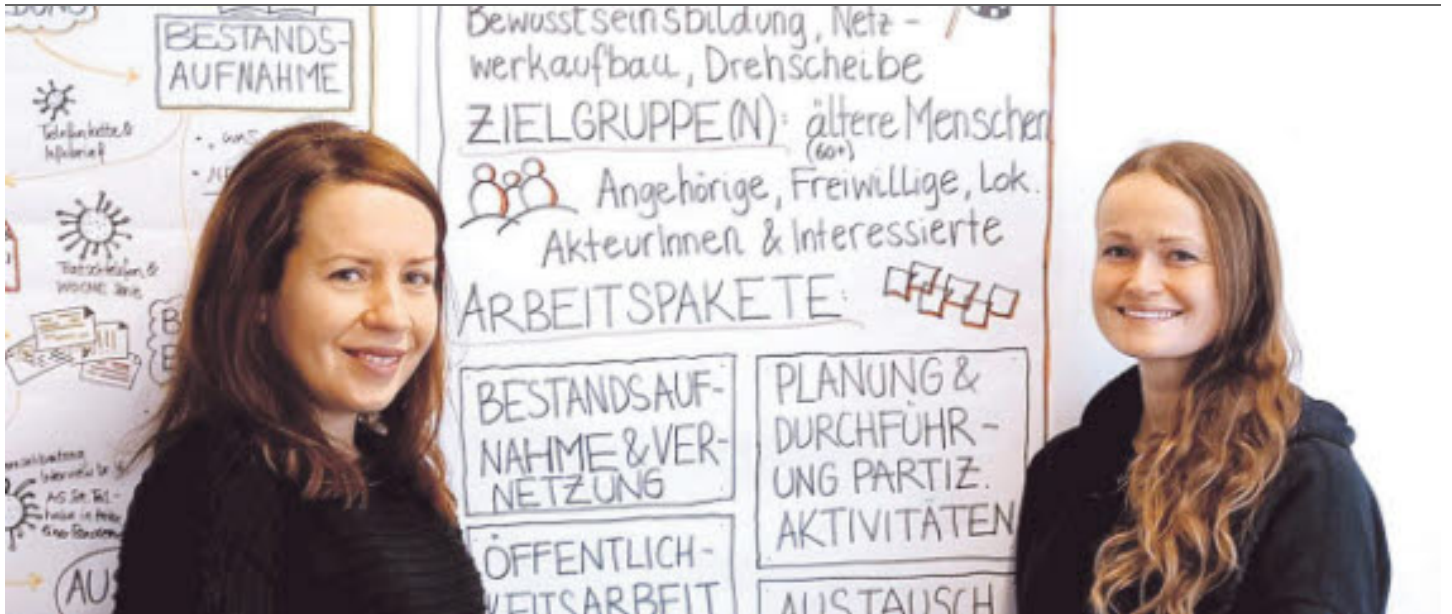 BESTANDS-
AUFNAHME
Telefonkette &
Infobrief
WOCHE Serie
Bewusstseinsbildung, Netz-
werkaufbau, Drehscheibe
ZIELGRUPPE(N): ältere Menschen
(60+)
Angehörige, Freiwillige, Lok.
AkteurInnen & Interessierte
ARBEITSPAKETE:
BESTANDSAUF-
NAHME & VER-
NETZUNG
PLANUNG &
DURCHFÜHR-
UNG PARTIZ.
AKTIVITÄTEN
ÖFFENTLICH-
KEITSARBEIT
AUSTAUSCH